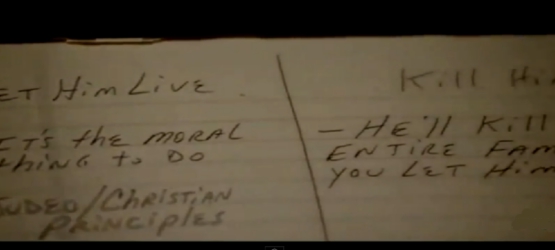 ET Him Live
IT's the MORAL
thiNG to DO
JUDEO/CHRiSTiAN
PRiNCiPLES
Kill Hi
- HE'll Kill
ENTiRE FAM
YOU LET Him